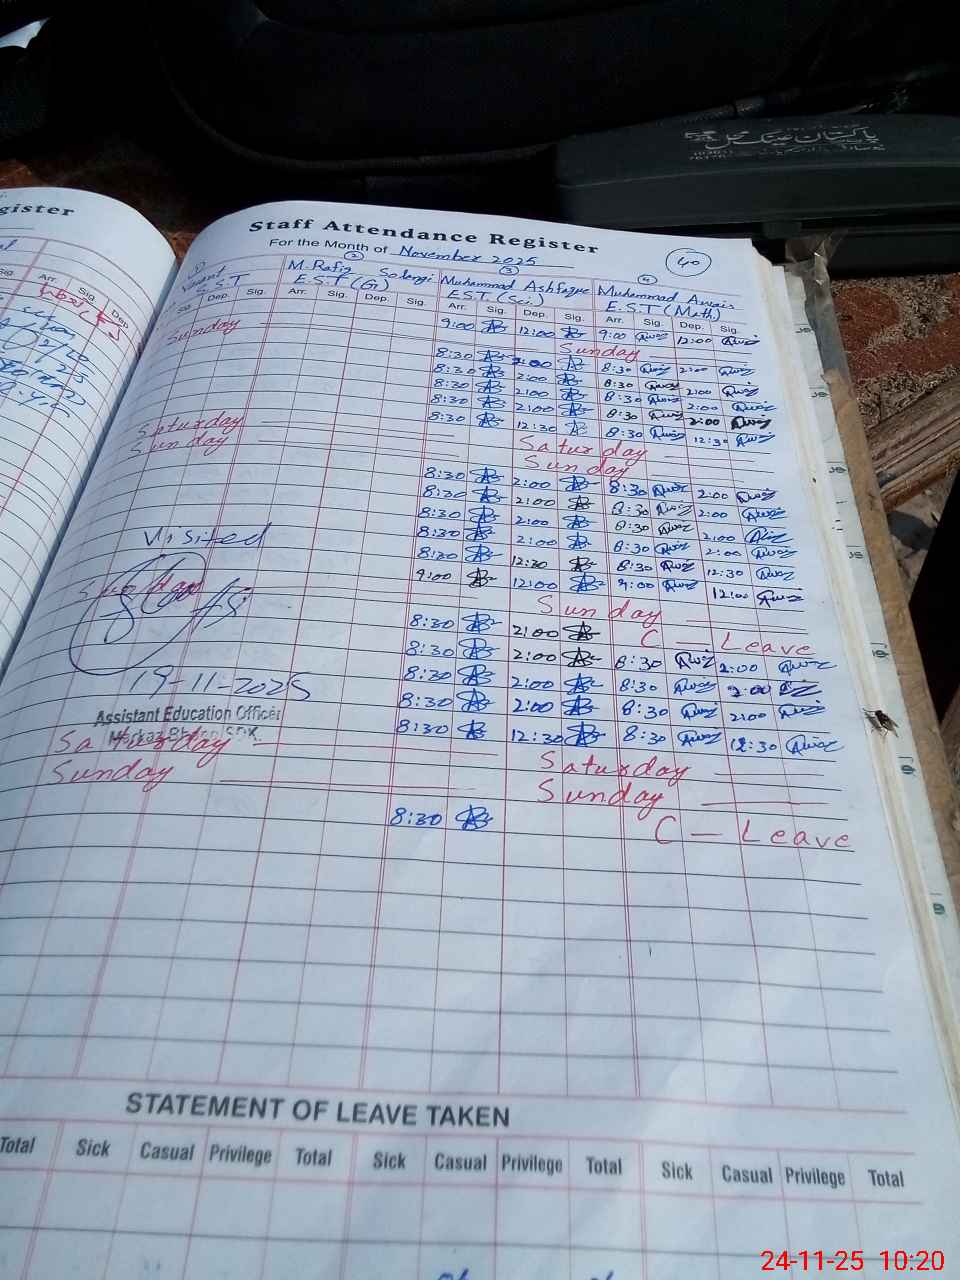 پاکستان عینک محل
gister
Staff Attendance Register
For the Month of November 2025
40
1 2 3 4
Vacant M. Rafiq Solangi Muhammad Ashfaque Muhammad Awais
S.S.T E.S.T (G) E.S.T. (Sci.) E.S.T (Math)
Sig. Arr. Sig. Dep. Sig. Dep. Sig. Arr. Sig. Dep. Sig. Arr. Sig. Dep. Sig. Arr. Sig. Dep. Sig.
9:00 12:00 9:00 Awais 12:00 Awais
Sunday Sunday
8:30 2:00 8:30 Awais 2:00 Awais
8:30 2:00 8:30 Awais 2:00 Awais
8:30 2:00 8:30 Awais 2:00 Awais
8:30 2:00 8:30 Awais 2:00 Awais
8:30 12:30 8:30 Awais 12:30 Awais
Saturday Saturday
Sunday Sunday
8:30 2:00 8:30 Awais 2:00 Awais
8:30 2:00 8:30 Awais 2:00 Awais
8:30 2:00 8:30 Awais 2:00 Awais
8:30 2:00 8:30 Awais 2:00 Awais
8:30 12:30 8:30 Awais 12:30 Awais
9:00 12:00 9:00 Awais 12:00 Awais
Visited
Sunday Sunday
8:30 2:00 C — Leave
8:30 2:00 8:30 Awais 2:00 Awais
8:30 2:00 8:30 Awais 2:00 Awais
8:30 2:00 8:30 Awais 2:00 Awais
8:30 12:30 8:30 Awais 12:30 Awais
19-11-2025
Assistant Education Officer
Markaz
Saturday Saturday
Sunday Sunday
8:30 C — Leave
STATEMENT OF LEAVE TAKEN
Total Sick Casual Privilege Total Sick Casual Privilege Total Sick Casual Privilege Total
24-11-25 10:20